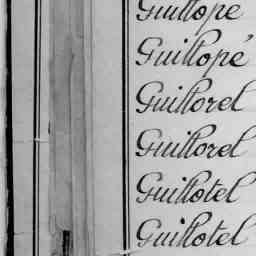 Guillope
Guillopé
Guillorel
Guillorel
Guillotel
Guillotel